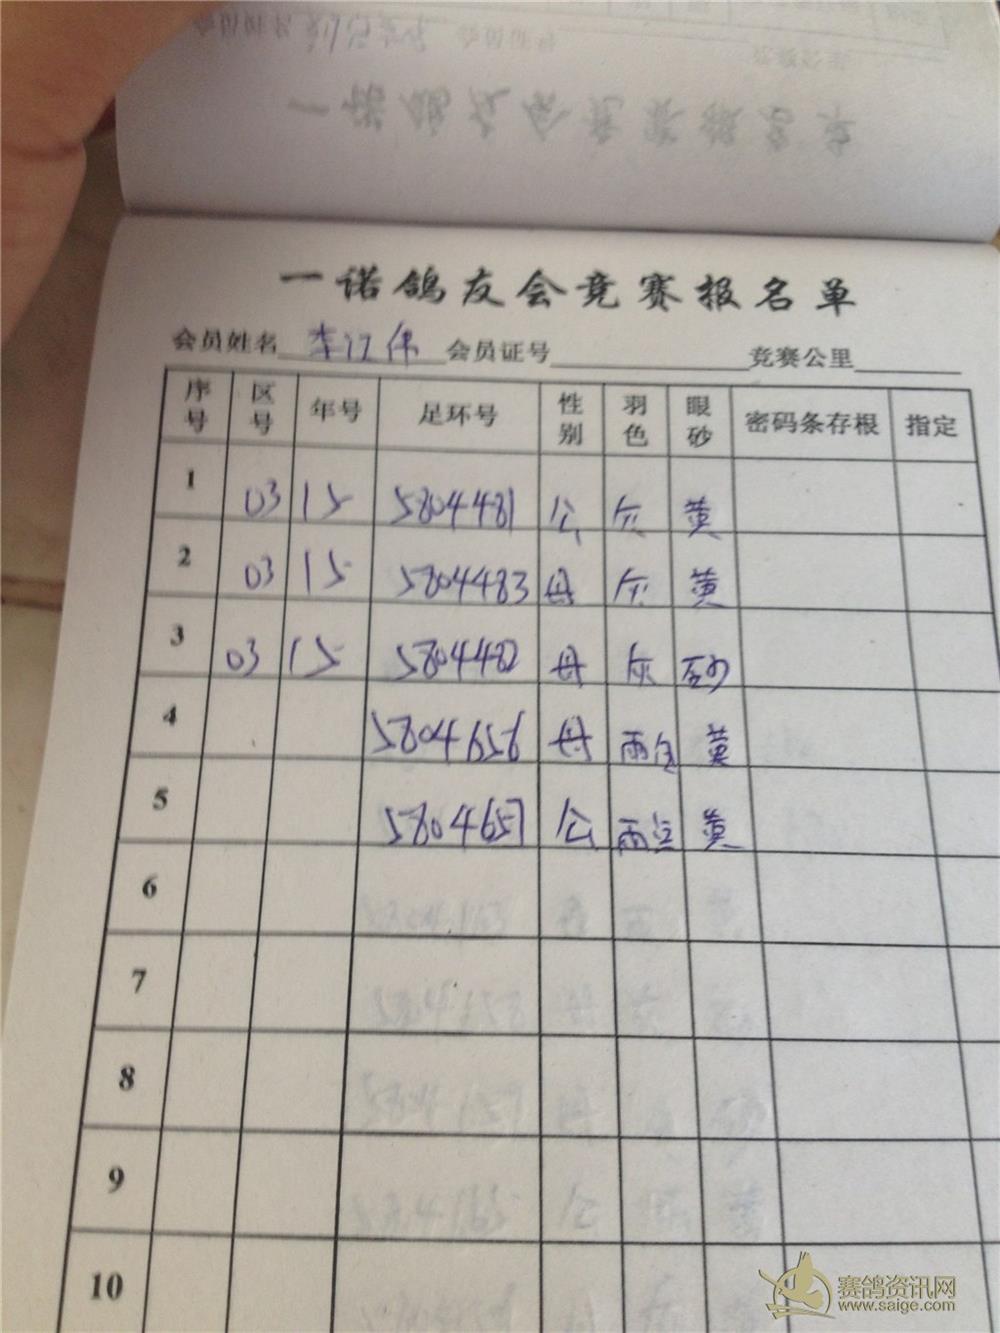 一诺鸽友会竞赛报名单
会员姓名 李江伟 会员证号 竞赛公里
序号 区号 年号 足环号 性别 羽色 眼砂 密码条存根 指定
1 03 15 5804481 公 灰 黄
2 03 15 5804483 母 灰 黄
3 03 15 5804482 母 灰 砂
4 5804656 母 雨白 黄
5 5804657 公 雨点 黄
6
7
8
9
10
赛鸽资讯网
www.saige.com